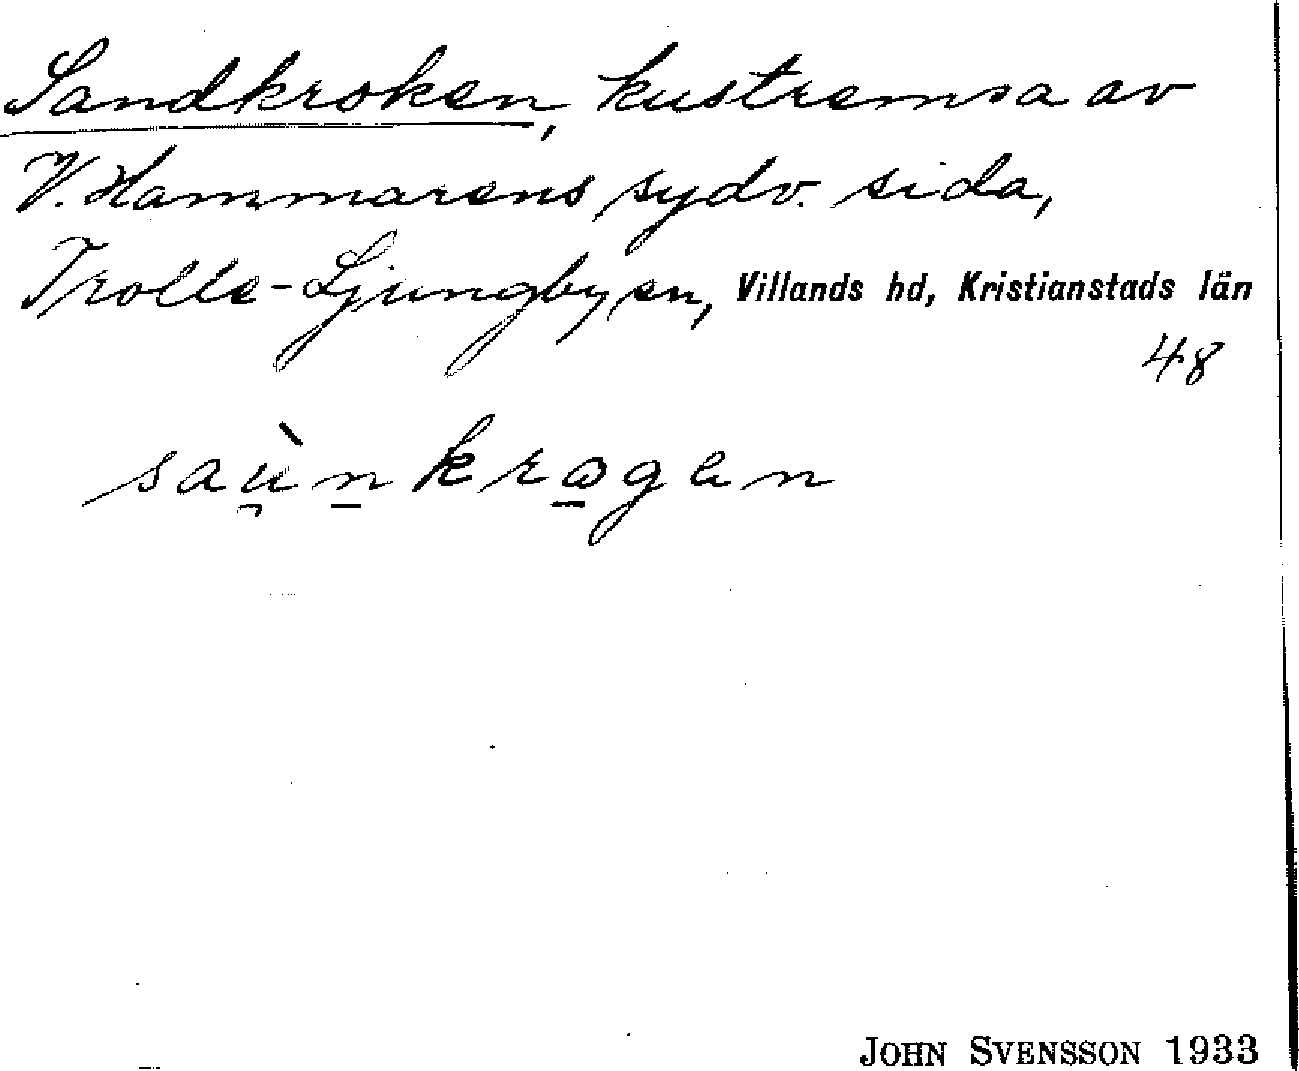 Sandkroken, kustremsa av
V. Hammarens sydv. sida,
Trolle-Ljungby sn, Villands hd, Kristianstads län
48
saù̯n̠krɷ̠gen
JOHN SVENSSON 1933